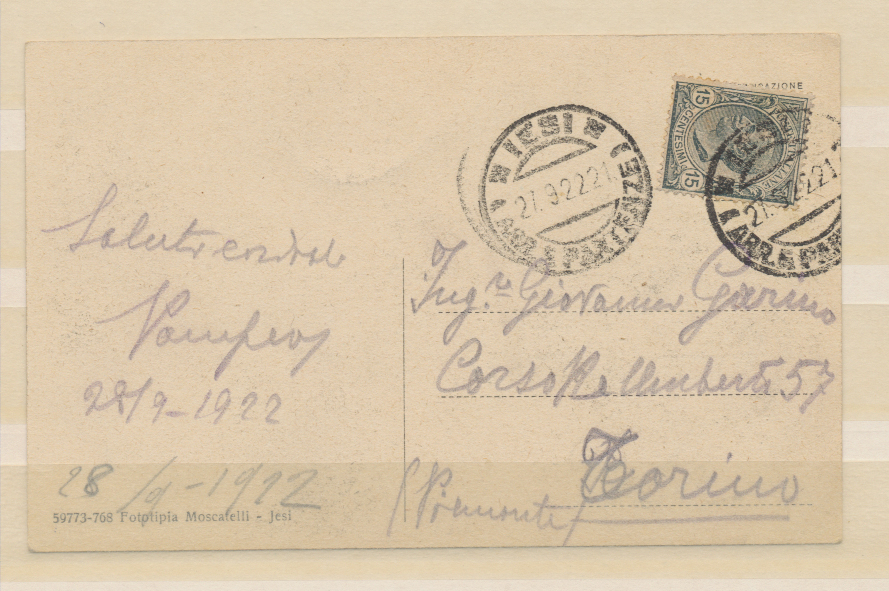 15 CENTESIMI 15
IESI
27.9.22.21
(ARR. E PARTENZE)
27. 221
(ARR. E PAR
Saluti cordiali
Pompeo
28/9-1922
28/9-1922
Ing.re Giovanni Garino
Corso Re Umberto 57
Torino
(Piemonte)
59773-768 Fototipia Moscatelli - Jesi